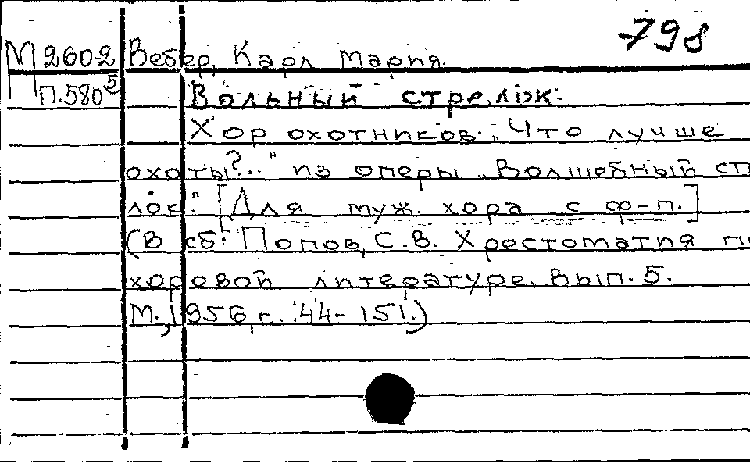 798
М2602 Вебер, Карл Мария.
П.580⁵ Вольный стрелок.
Хор охотников: „Что лучше
охоты?..." из оперы „Волшебный стре
лок". [Для муж. хора с ф-п.]
(В сб: Попов, С.В. Хрестоматия по
хоровой литературе. Вып. 5.
М., 1956, г. 144-151.)